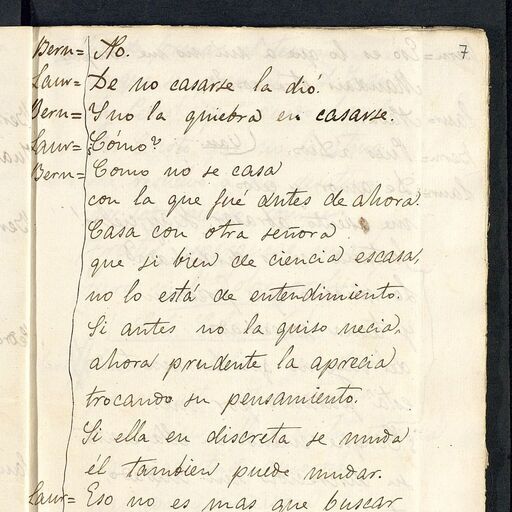 7
Bern= No.
Laur= De no casarse la dió.
Bern= Y no la quiebra en casarse.
Laur= ¿Cómo?
Bern= Como no se casa
con la que fué antes de ahora.
Casa con otra señora
que si bien de ciencia escasa,
no lo está de entendimiento.
Si antes no la quiso necia,
ahora prudente la aprecia
trocando su pensamiento.
Si ella en discreta se muda
él tambien puede mudar.
Laur= Eso no es mas que buscar